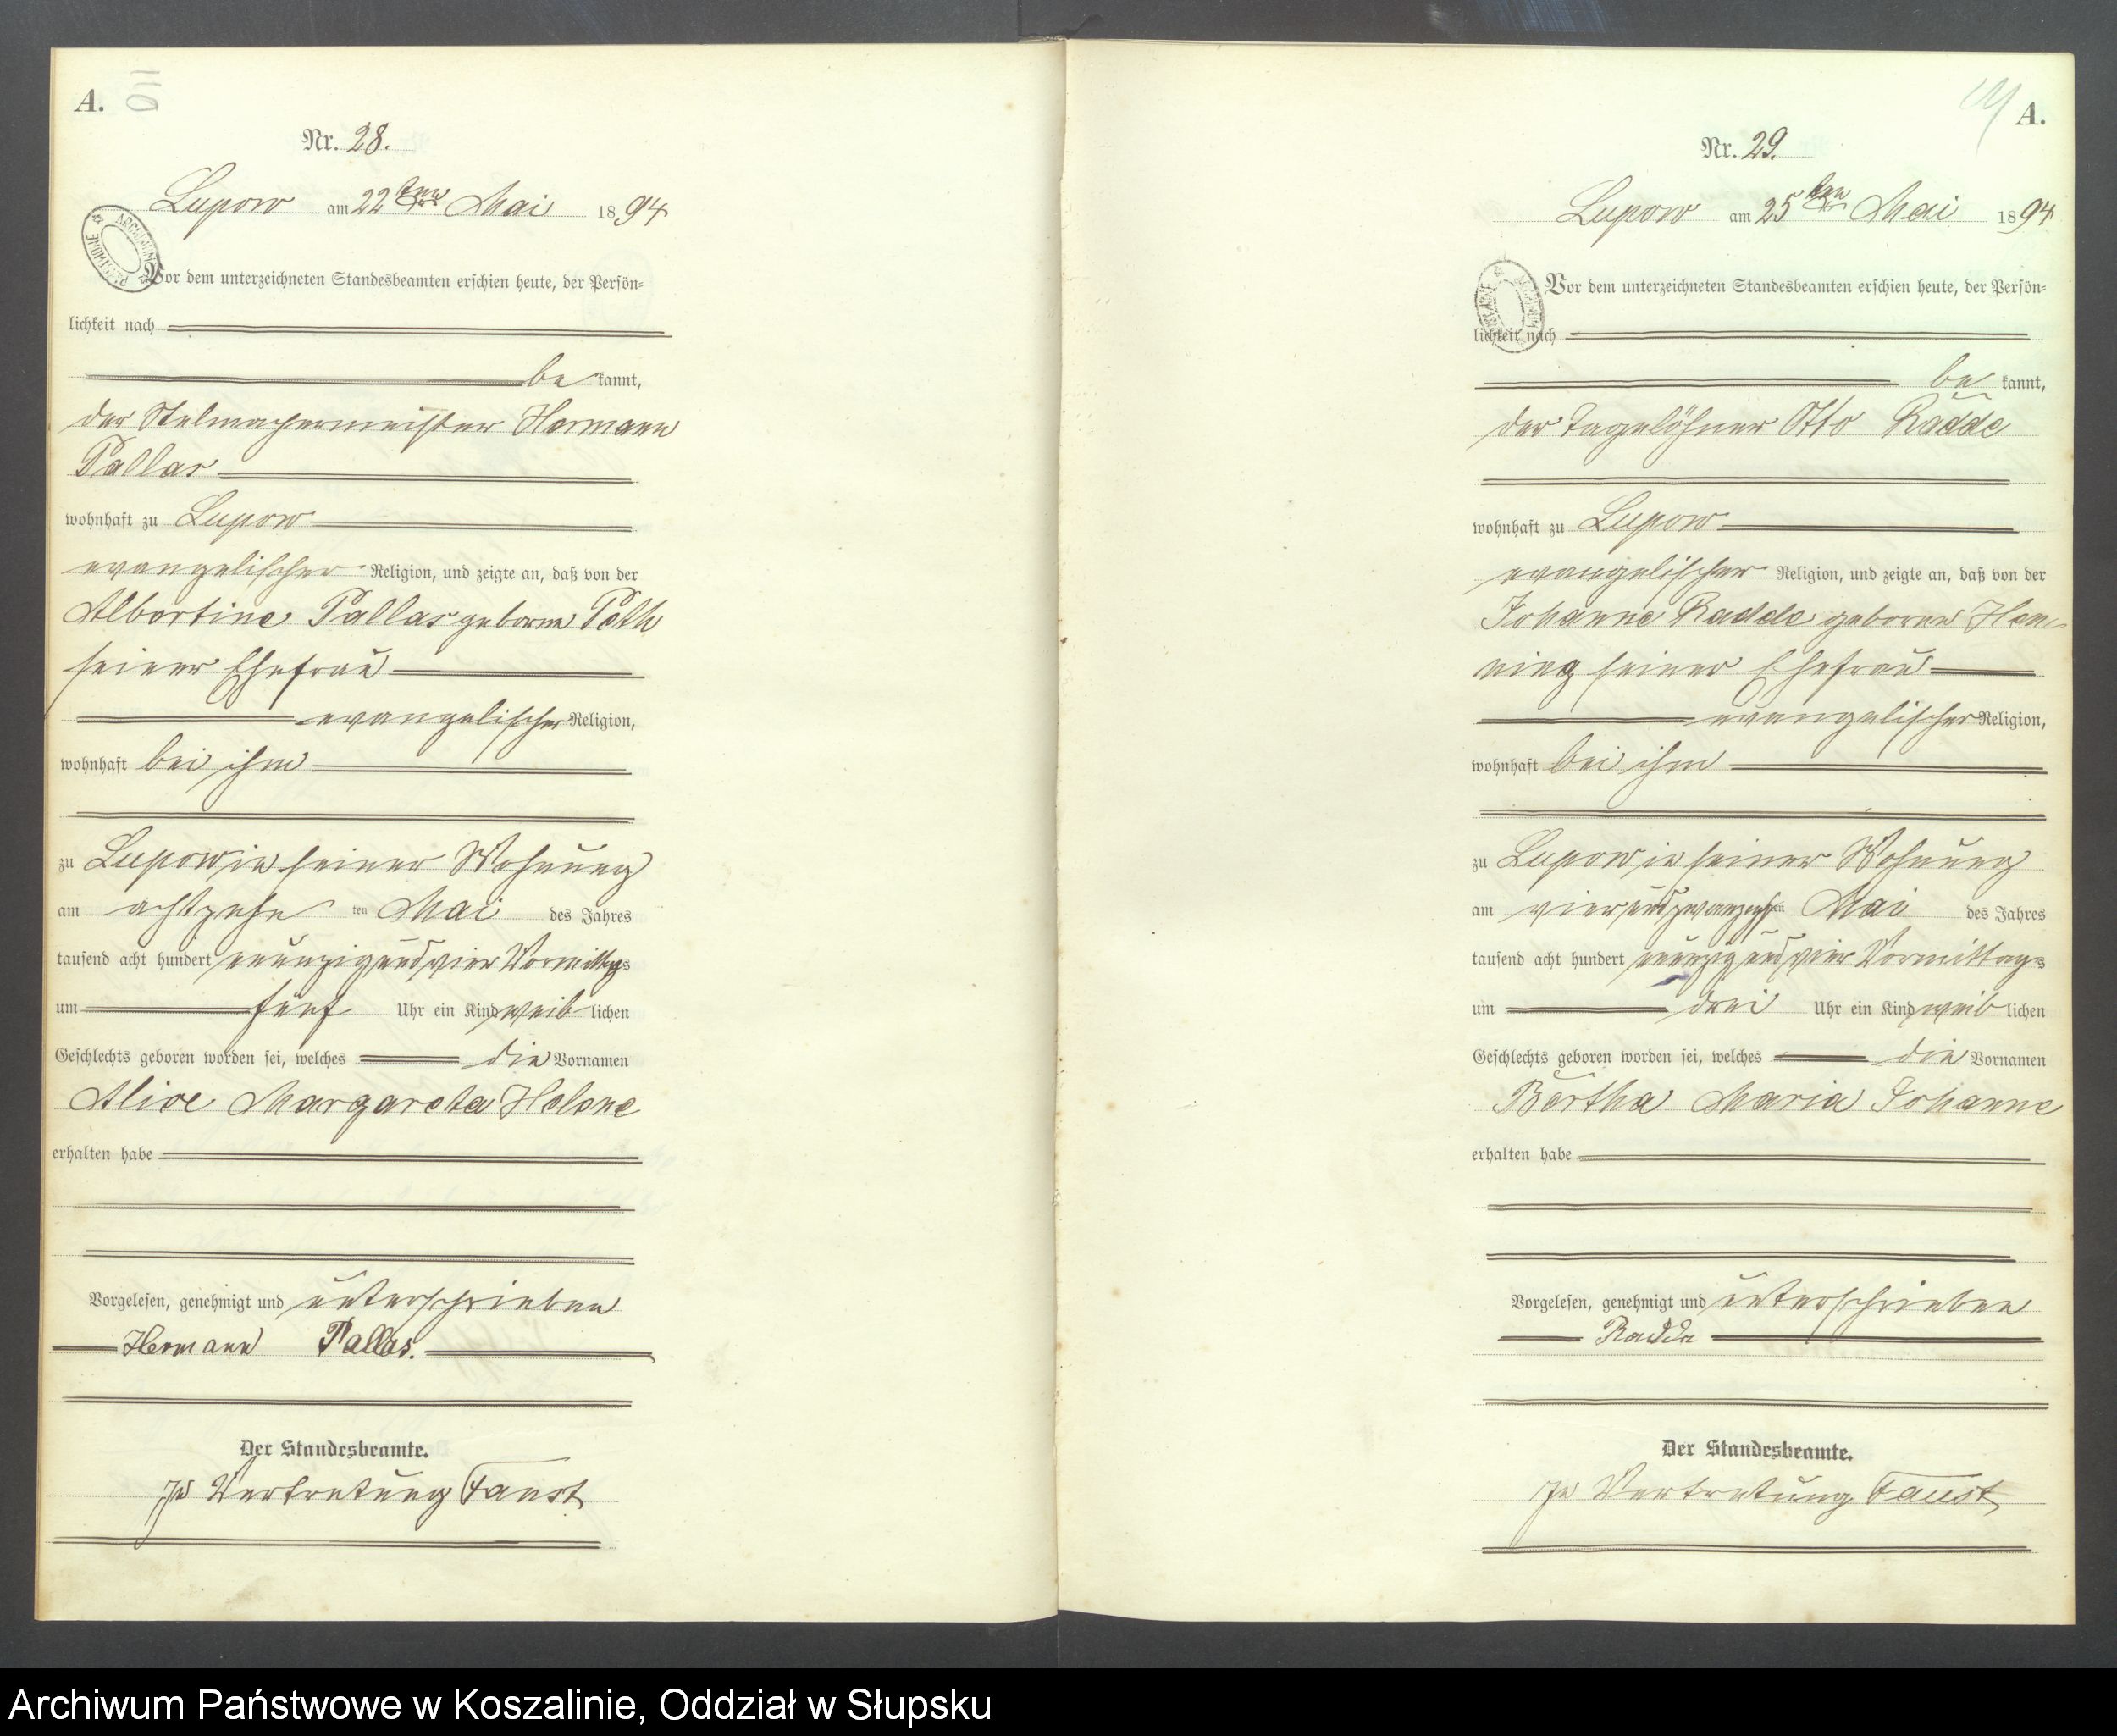 A.
Nr. 28.
Lupow am 22ten Mai 1894
Vor dem unterzeichneten Standesbeamten erschien heute, der Persön-
lichkeit nach
be kannt,
der Stelmachermeister Hermann
Pallas
wohnhaft zu Lupow
evangelischer Religion, und zeigte an, daß von der
Albertine Pallas geborne Peth
seiner Ehefrau
evangelischer Religion,
wohnhaft bei ihm
zu Lupow in seiner Wohnung
am achtzehn ten Mai des Jahres
tausend acht hundert neunzig und vier Vormittags
um fünf Uhr ein Kind weib lichen
Geschlechts geboren worden sei, welches die Vornamen
Alice Margareta Helene
erhalten habe
Vorgelesen, genehmigt und unterschrieben
Hermann Pallas.
Der Standesbeamte.
In Vertretung Faust
A.
Nr. 29.
Lupow am 25ten Mai 1894
Vor dem unterzeichneten Standesbeamten erschien heute, der Persön-
lichkeit nach
be kannt,
der Tagelöhner Otto Radde
wohnhaft zu Lupow
evangelischer Religion, und zeigte an, daß von der
Johanne Radde geborne Hen-
ning seiner Ehefrau
evangelischer Religion,
wohnhaft bei ihm
zu Lupow in seiner Wohnung
am vier und zwanzigsten Mai des Jahres
tausend acht hundert neunzig und vier Vormittags
um drei Uhr ein Kind weib lichen
Geschlechts geboren worden sei, welches die Vornamen
Bertha Maria Johanne
erhalten habe
Vorgelesen, genehmigt und unterschrieben
Radde
Der Standesbeamte.
In Vertretung Faust
Archiwum Państwowe w Koszalinie, Oddział w Słupsku